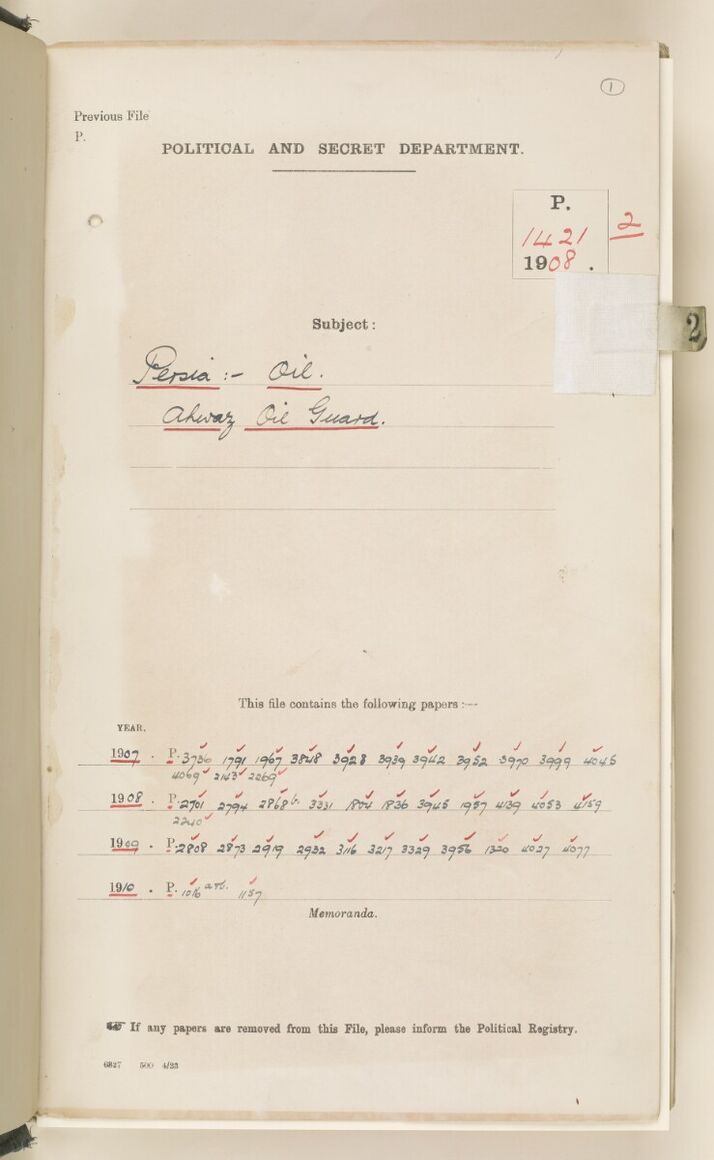 1
Previous File
P.
POLITICAL AND SECRET DEPARTMENT.
P.
1421
2
1908.
2
Subject:
Persia :- Oil.
Ahwaz Oil Guard.
This file contains the following papers :—
YEAR.
1907 . P. 3736 1791 1967 3848 3928 3939 3942 3952 3970 3999 4045
4069 2143 2269
1908 . P. 2701 2794 2868 3331 1804 1836 3945 1957 4139 4053 4159
2240
1909 . P. 2808 2873 2919 2932 3116 3217 3329 3956 1320 4027 4077
1910 . P. 1016 1157
Memoranda.
If any papers are removed from this File, please inform the Political Registry.
6827 500 4/23